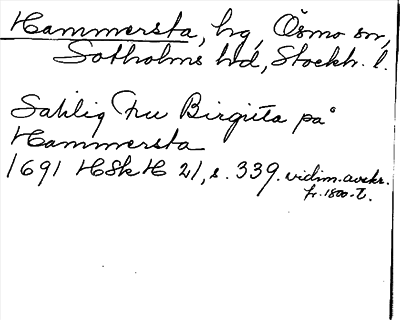 Hammersta, hg, Ösmo sn,
Sotholms hd, Stockh. l.
Sahlig Fru Birgitta på
Hammersta
1691 HSH H 21, s. 339. vidim. avskr.
fr. 1800-t.